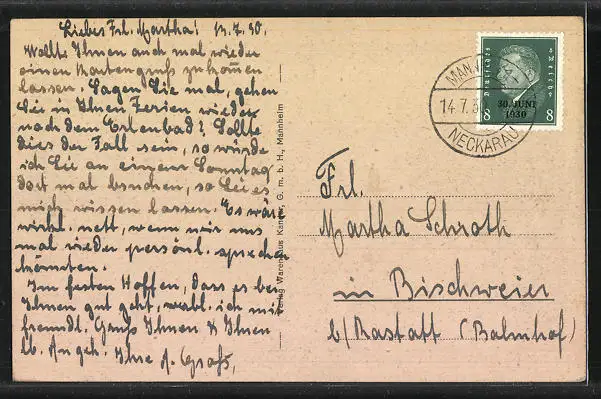 Liebes Frl. Martha! 13.7.30.
Wollte Ihnen auch mal wieder
einen Kartengruß zukommen
lassen. Sagen Sie mal, gehen
Sie in Ihren Ferien wieder
nach dem Erlenbad? Sollte
dies der Fall sein, so würde
ich Sie an einem Sonntag
dort mal besuchen, so Sie es
mich wissen lassen. Es wäre
wirkl. nett, wenn wir uns
mal wieder persönl. sprechen
könnten.
Im festen Hoffen, dass es bei
Ihnen gut geht, verbl. ich mit
freundl. Gruß Ihnen & Ihren
lb. Angeh. Ihre
Verlag Warenhaus Kander G. m. b. H., Mannheim
Deutsches Reich
30. JUNI
1930
8 8
MANNHEIM
14.7.30
NECKARAU
Frl.
Martha Schroth
in Bischweier
b/Rastatt (Bahnhof)